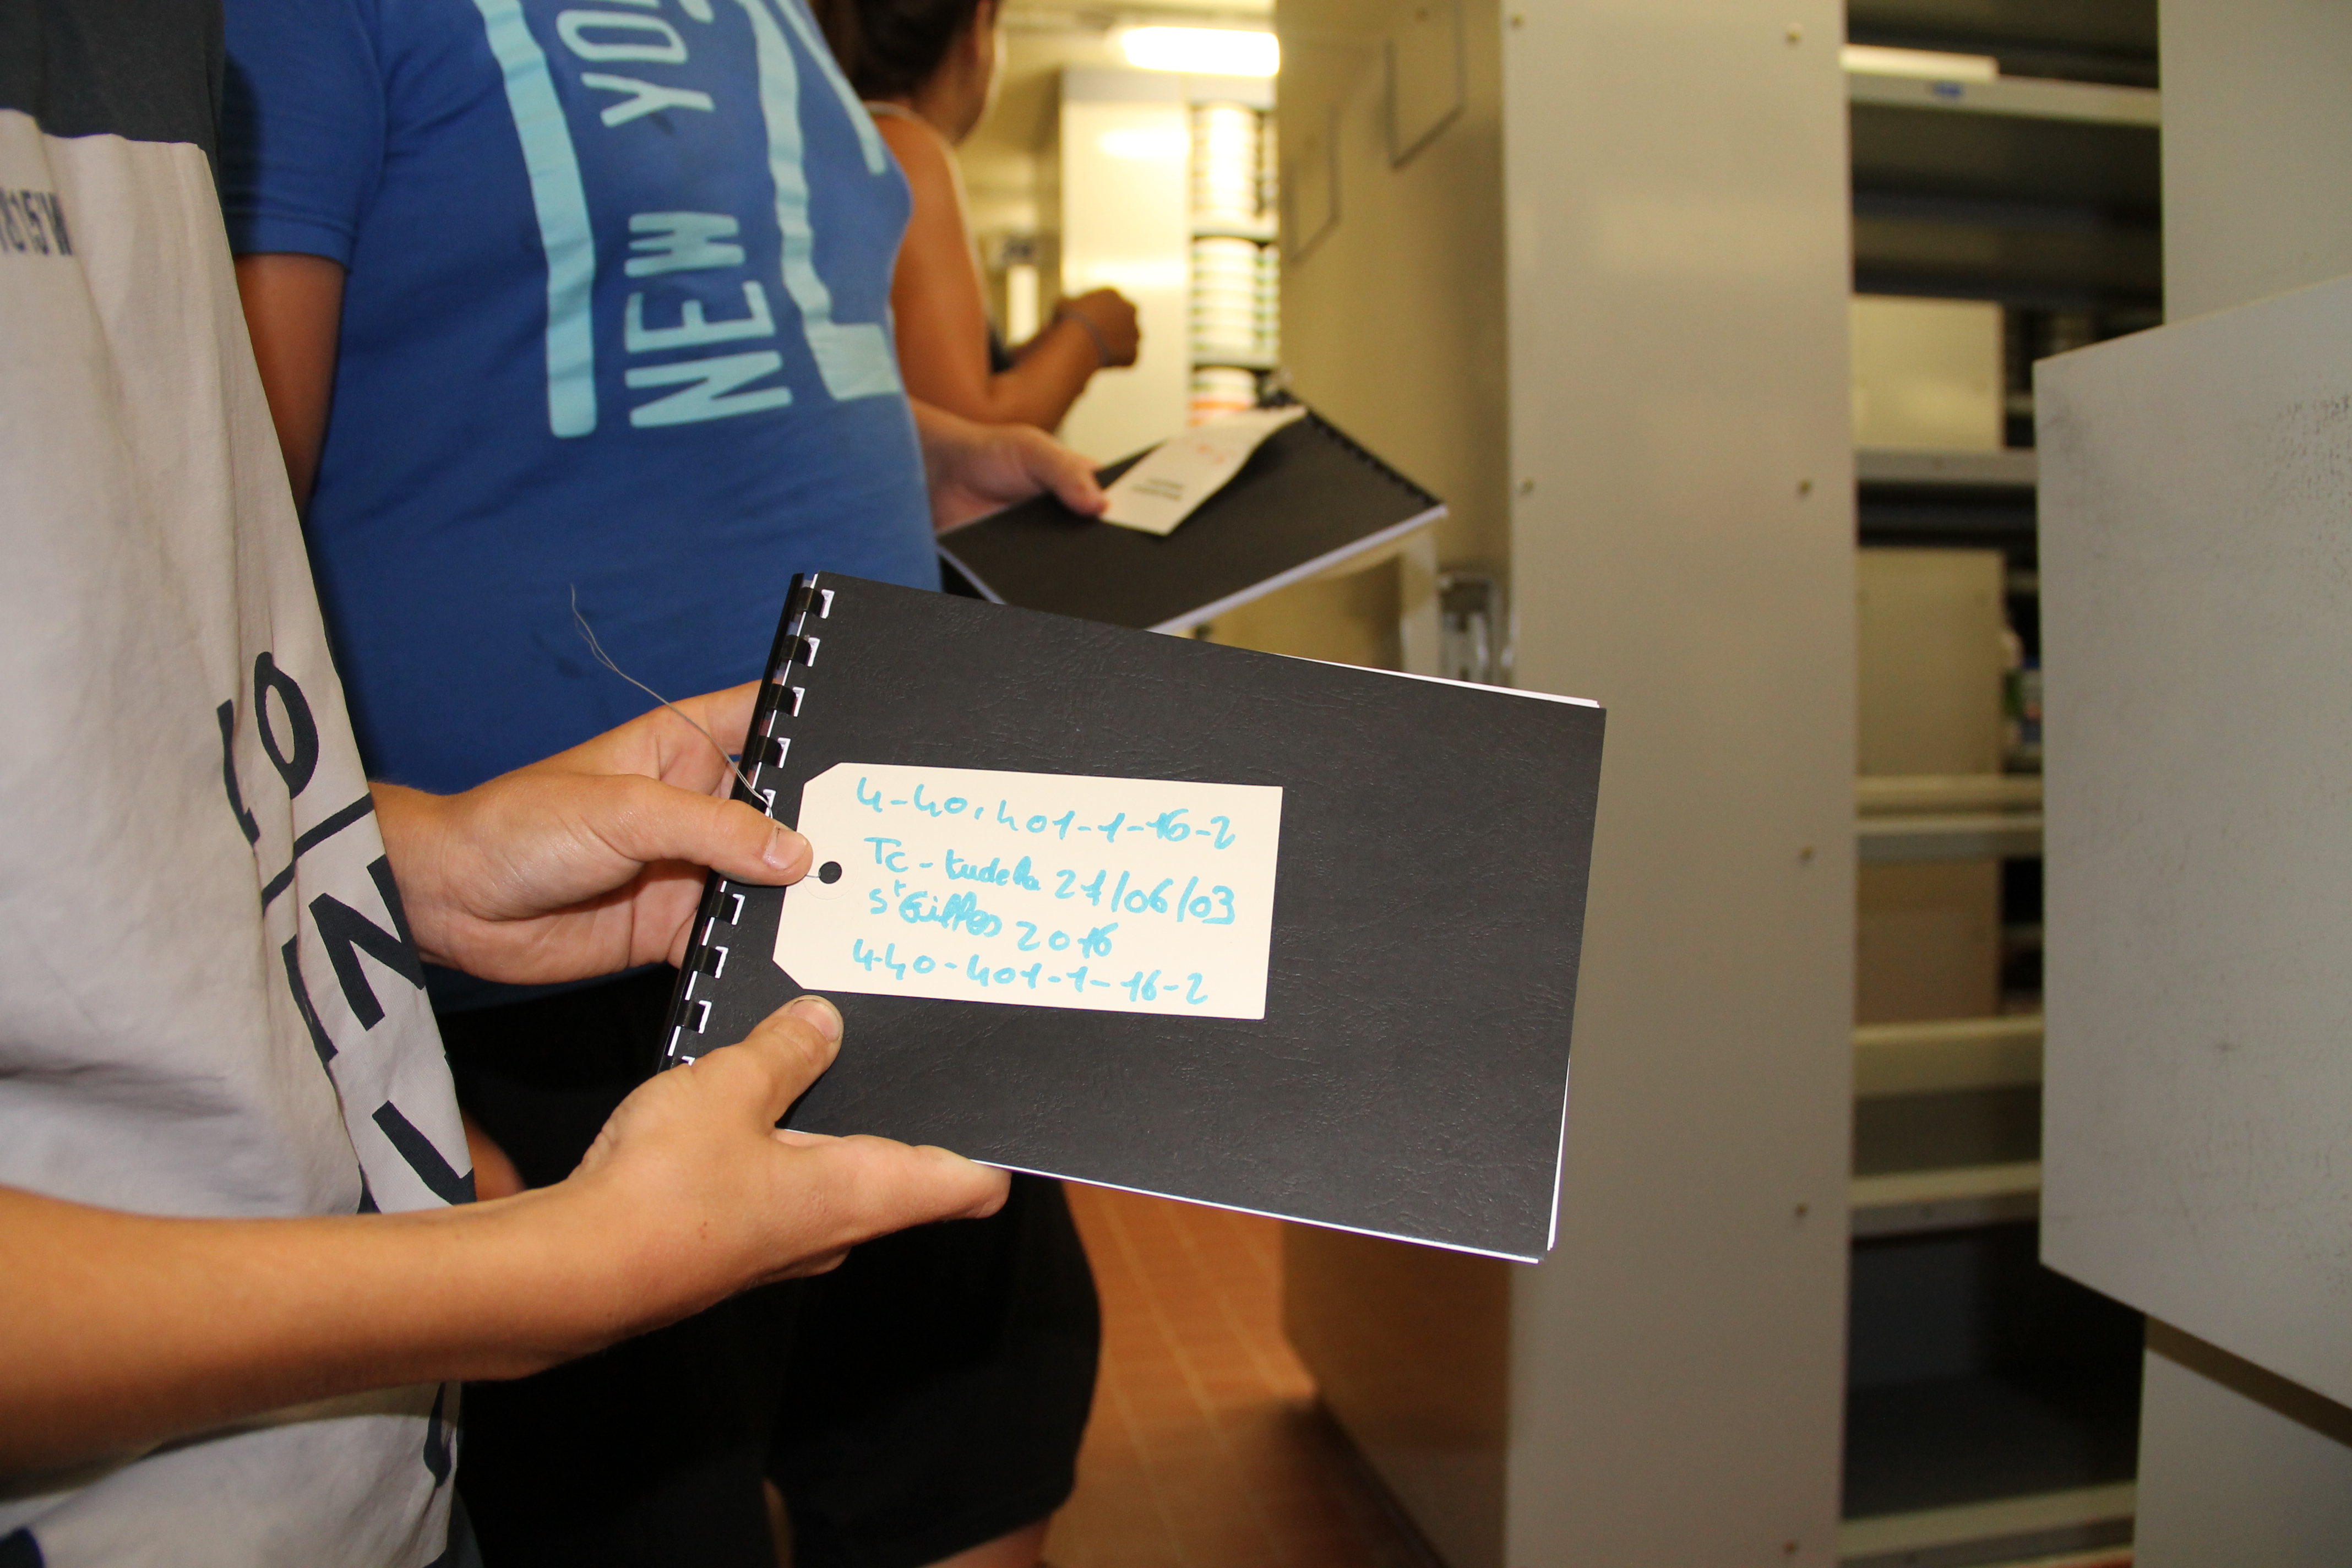 NEW YO
4-40.401-1-16-2
Tc-Kudela 21/06/03
St Gilles 2016
4-40-401-1-16-2